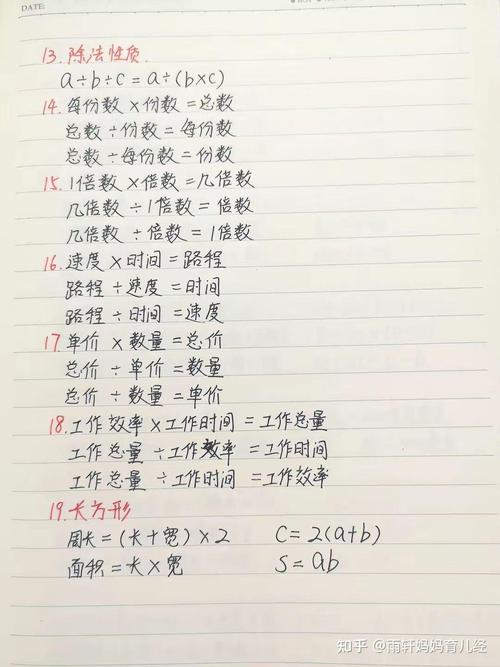 DATE:
13. 除法性质
a÷b÷c=a÷(b×c)
14. 每份数×份数=总数
总数÷份数=每份数
总数÷每份数=份数
15. 1倍数×倍数=几倍数
几倍数÷1倍数=倍数
几倍数÷倍数=1倍数
16. 速度×时间=路程
路程÷速度=时间
路程÷时间=速度
17. 单价×数量=总价
总价÷单价=数量
总价÷数量=单价
18. 工作效率×工作时间=工作总量
工作总量÷工作效率=工作时间
工作总量÷工作时间=工作效率
19. 长方形
周长=(长+宽)×2 C=2(a+b)
面积=长×宽 S=ab
知乎 @雨轩妈妈育儿经